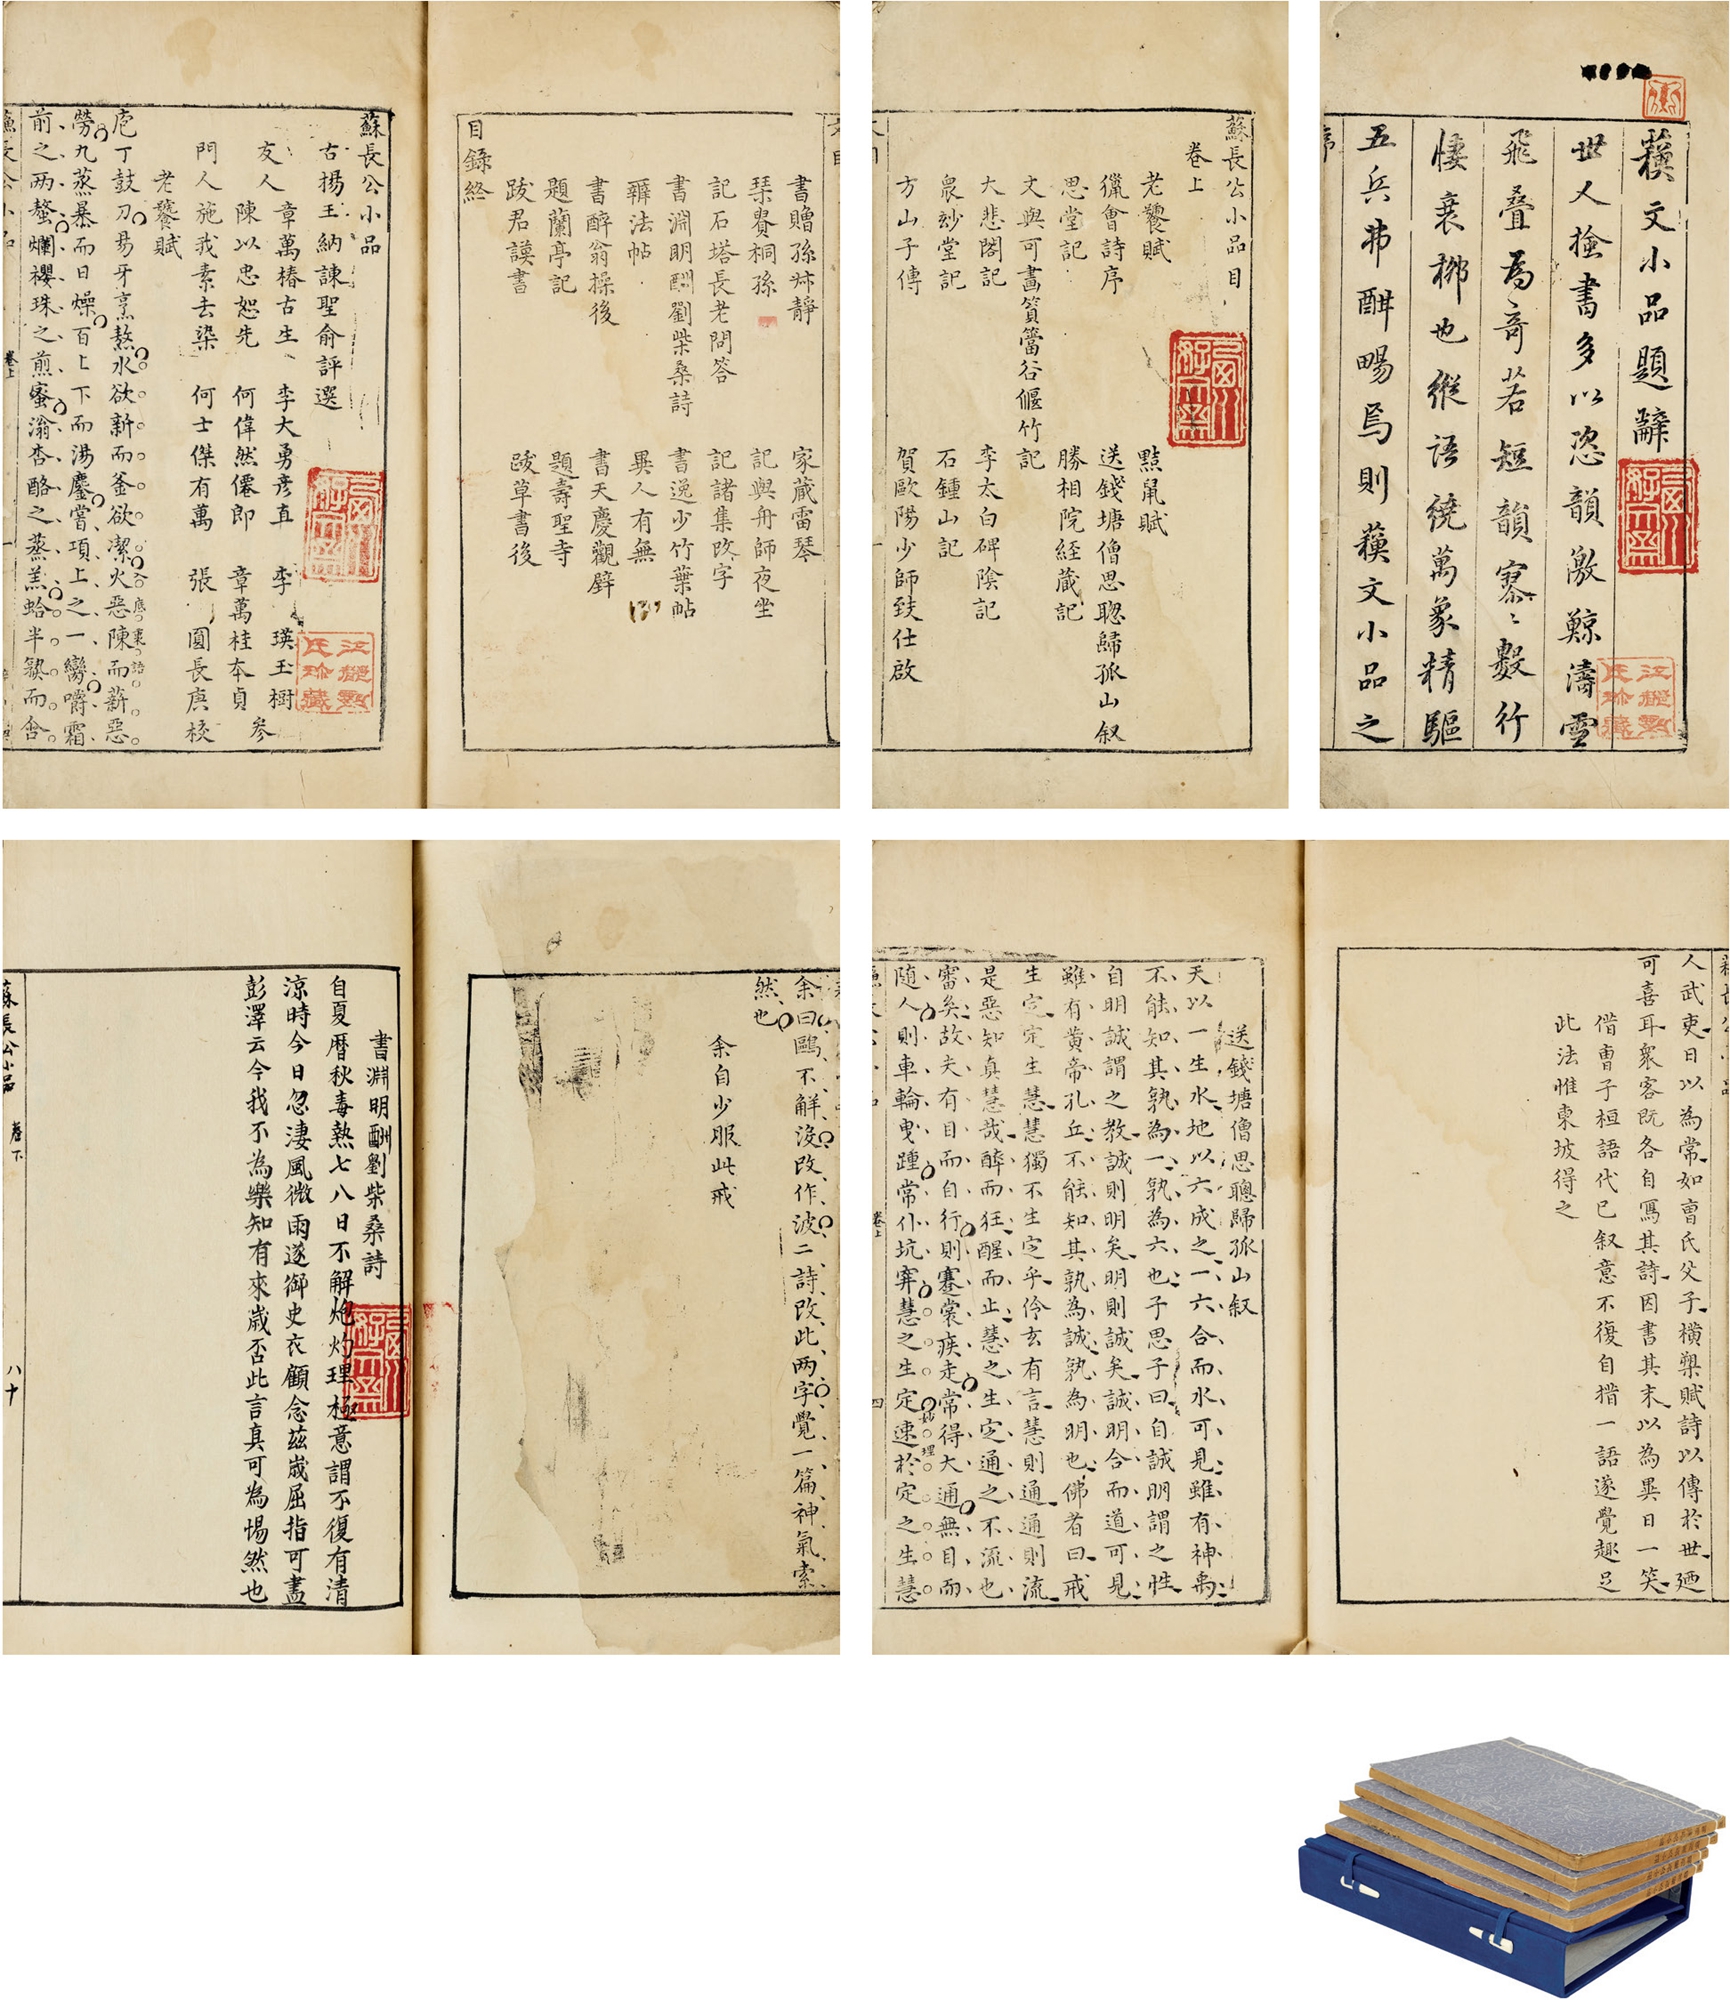 蘓文小品題辭
世人撿書多以恣韻激鯨濤雪
飛疊為奇若短韻寥〻數行
悽衰槨也縱語繞萬象精驅
五兵弗酣暢焉則蘓文小品之
蘇長公小品目
卷上
老饕賦
黠鼠賦
獵會詩序
送錢塘僧思聰歸孤山叙
思堂記
勝相院経蔵記
文與可畫篔簹谷偃竹記
大悲閣記
李太白碑陰記
衆妙堂記
石鍾山記
方山子傳
賀歐陽少師致仕啟
書贈孫叔靜
家蔵雷琴
琹貴桐孫
記與舟師夜坐
記石塔長老問答
記諸集改字
書淵明酬劉柴桑詩
書逸少竹葉帖
辯法帖
異人有無
書醉翁操後
書天慶觀壁
題蘭亭記
題壽聖寺
跋君謨書
跋草書後
目錄終
蘇長公小品
古揚王納諫聖俞評選
友人
章萬椿古生
李大勇彦直
李
瑛玉樹
陳以忠恕先
何偉然僊郎
章萬桂本貞
叅
門人施我素去染
何士傑有萬
張
圓長庚校
老饕賦
庖丁鼓刀易牙烹熬水欲新而釜欲潔火惡陳而薪惡
勞九蒸暴而日燥百上下而湯鏖嘗項上之一臠嚼霜
前之两螯爛櫻珠之煎蜜滃杏酪之蒸羔蛤半熟而含
卷上
人武吏日以為常如曺氏父子橫槊賦詩以傳於世廼
可喜耳衆客既各自寫其詩因書其末以為異日一笑
借曺子桓語代已叙意不復自措一語遂覺趣足
此法惟東坡得之
送錢塘僧思聰歸孤山叙
天以一生水地以六成之一六合而水可見雖有神禹
不能知其孰為一孰為六也子思子曰自誠明謂之性
自明誠謂之教誠則明矣明則誠矣誠明合而道可見
雖有黄帝孔丘不能知其孰為誠孰為明也佛者曰戒
生定定生慧慧獨不生定乎伶玄有言慧則通通則流
是惡知真慧哉醉而狂醒而止慧之生定通之不流也
審矣故夫有目而自行則褰裳疾走常得大通無目而
随人則車輪曳踵常仆坑穽慧之生定速於定之生慧
卷上
四
余曰鷗不觧沒改作波二詩改此两字覺一篇神氣索
然也
余自少服此戒
書淵明酬劉柴桑詩
自夏曆秋毒熱七八日不解炮灼理極意謂不復有清
涼時今日忽淒風微雨遂御史衣顧念茲嵗屈指可盡
彭澤云今我不為樂知有來嵗否此言真可為惕然也
蘇長公小品
卷下
八十